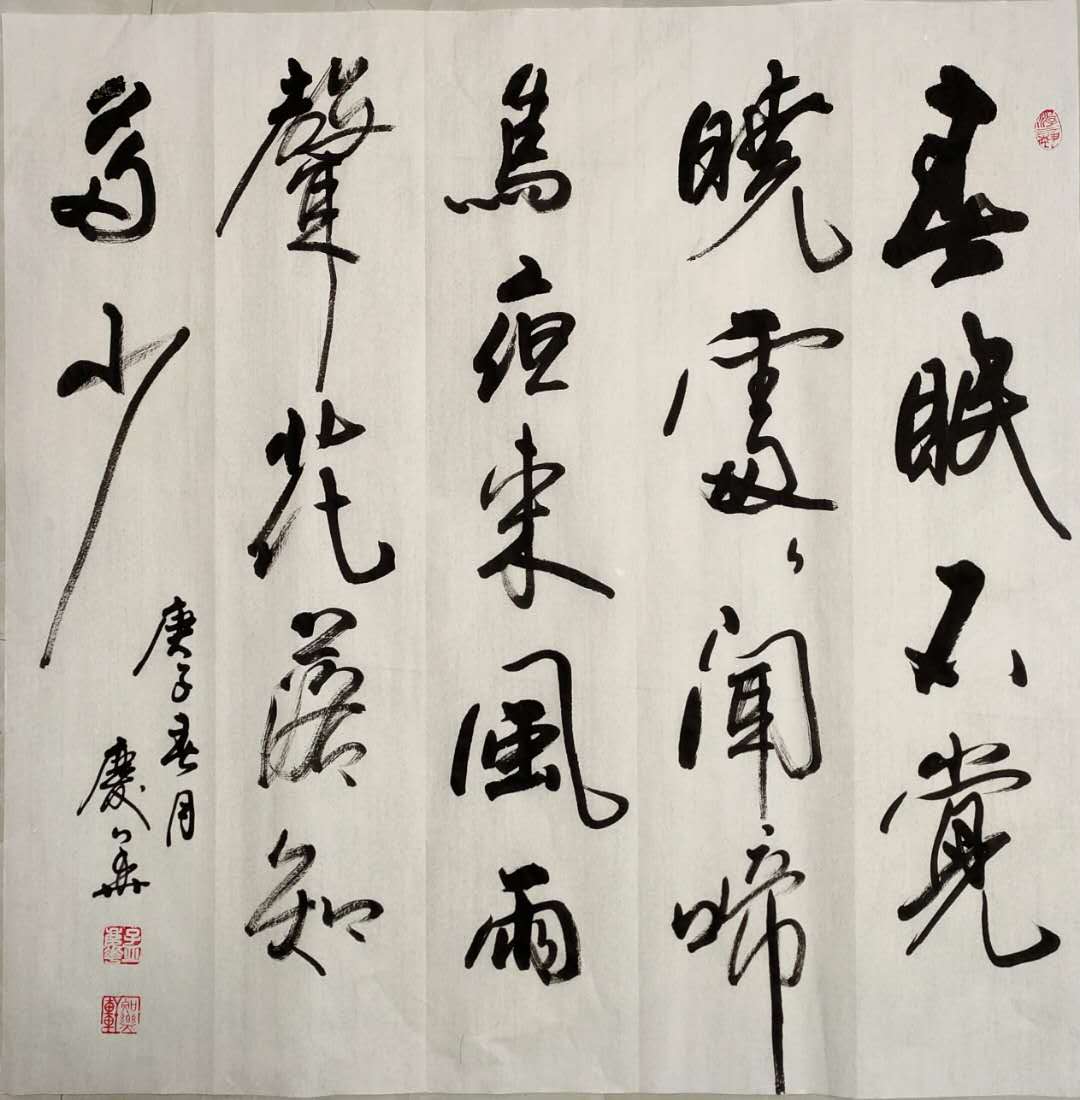 春眠不覺
曉處〻聞啼
鳥夜来風雨
聲花落知
多少
庚子春月
慶華